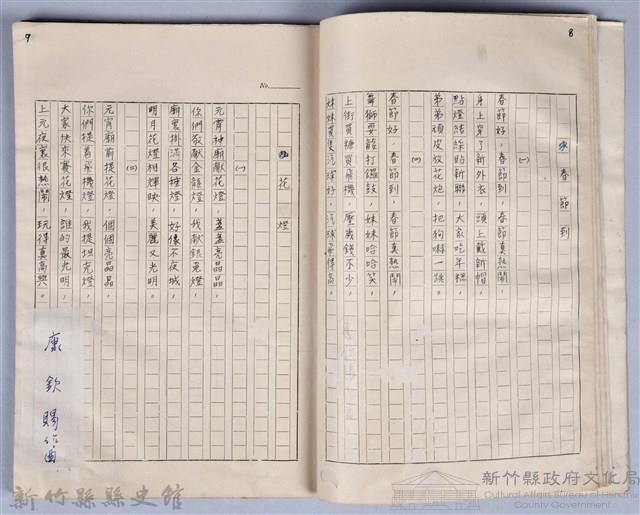 8
春節到
(一)
春節好，春節到，春節真熱鬧，
身上穿了新外衣，頭上戴新帽，
點燈結綵貼新聯，大家吃年糕，
弟弟頑皮放花炮，把狗嚇一跳。
(二)
春節好，春節到，春節真熱鬧，
舞獅耍龍打鑼鼓，妹妹哈哈笑，
上街買糖買飛機，壓歲錢不少，
妹妹買隻汽球好，汽球飛得高。
9
No.
花燈
(一)
元宵神廟獻花燈，盞盞亮晶晶，
你們敬獻金龍燈，我獻銀兔燈，
廟裏掛滿各種燈，好像不夜城，
明月花燈相輝映，美麗又光明。
(二)
元宵廟前提花燈，個個亮晶晶，
你們提着飛機燈，我提坦克燈，
大家快來賽花燈，誰的最光明，
上元夜裏很熱鬧，玩得真高興。
康欽賜作曲
新竹縣縣史館
新竹縣政府文化局
Cultural Affairs Bureau of Hsinchu
County Government